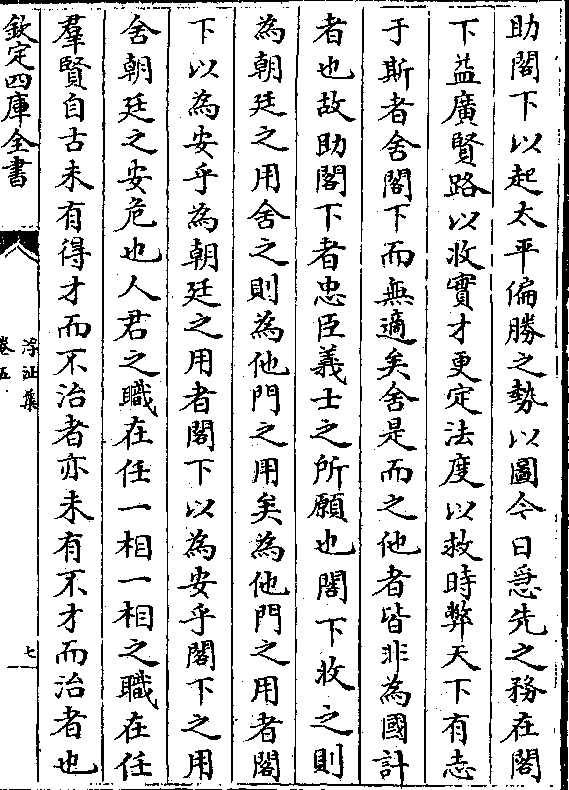 助閣下以起太平偏勝之勢以圖今日急先之務在閣
下益廣賢路以收實才更定法度以救時弊天下有志
于斯者舍閣下而無適矣舍是而之他者皆非為國計
者也故助閣下者忠臣義士之所願也閣下收之則
為朝廷之用舍之則為他門之用矣為他門之用者閣
下以為安乎為朝廷之用者閣下以為安乎閣下之用
舍朝廷之安危也人君之職在任一相一相之職在任
羣賢自古未有得才而不治者亦未有不才而治者也
欽定四庫全書
浮沚集
卷五
七